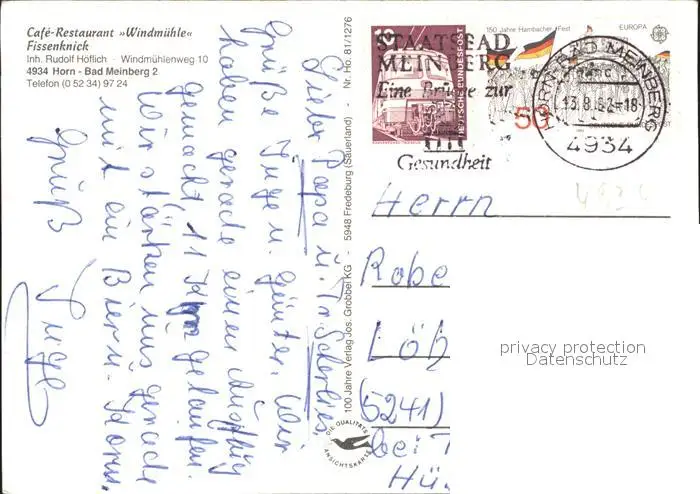 Café-Restaurant »Windmühle«
Fissenknick
Inh. Rudolf Höflich · Windmühlenweg 10
4934 Horn - Bad Meinberg 2
Telefon (0 52 34) 97 24
Lieber Papa u.
Grüße Inge u. Günter. Wir
haben gerade einen Ausflug
gemacht, 11 Km gelaufen.
Wir stärken uns gerade
mit ein Bier u. Korn.
Gruß
Inge
100 Jahre Verlag Jos. Grobbel KG - 5948 Fredeburg (Sauerland) - Nr. Ho. 81/1276
DIE QUALITÄTS
ANSICHTSKARTE
10
DEUTSCHE BUNDESPOST
150 Jahre Hambacher Fest
EUROPA
50
STAATSBAD
MEINBERG
Eine Brücke zur
Gesundheit
HORN-BAD MEINBERG
13.8.82-18
4934
4934
Herrn
Robe
Löh
(5241)
bei
Hü
privacy protection
Datenschutz